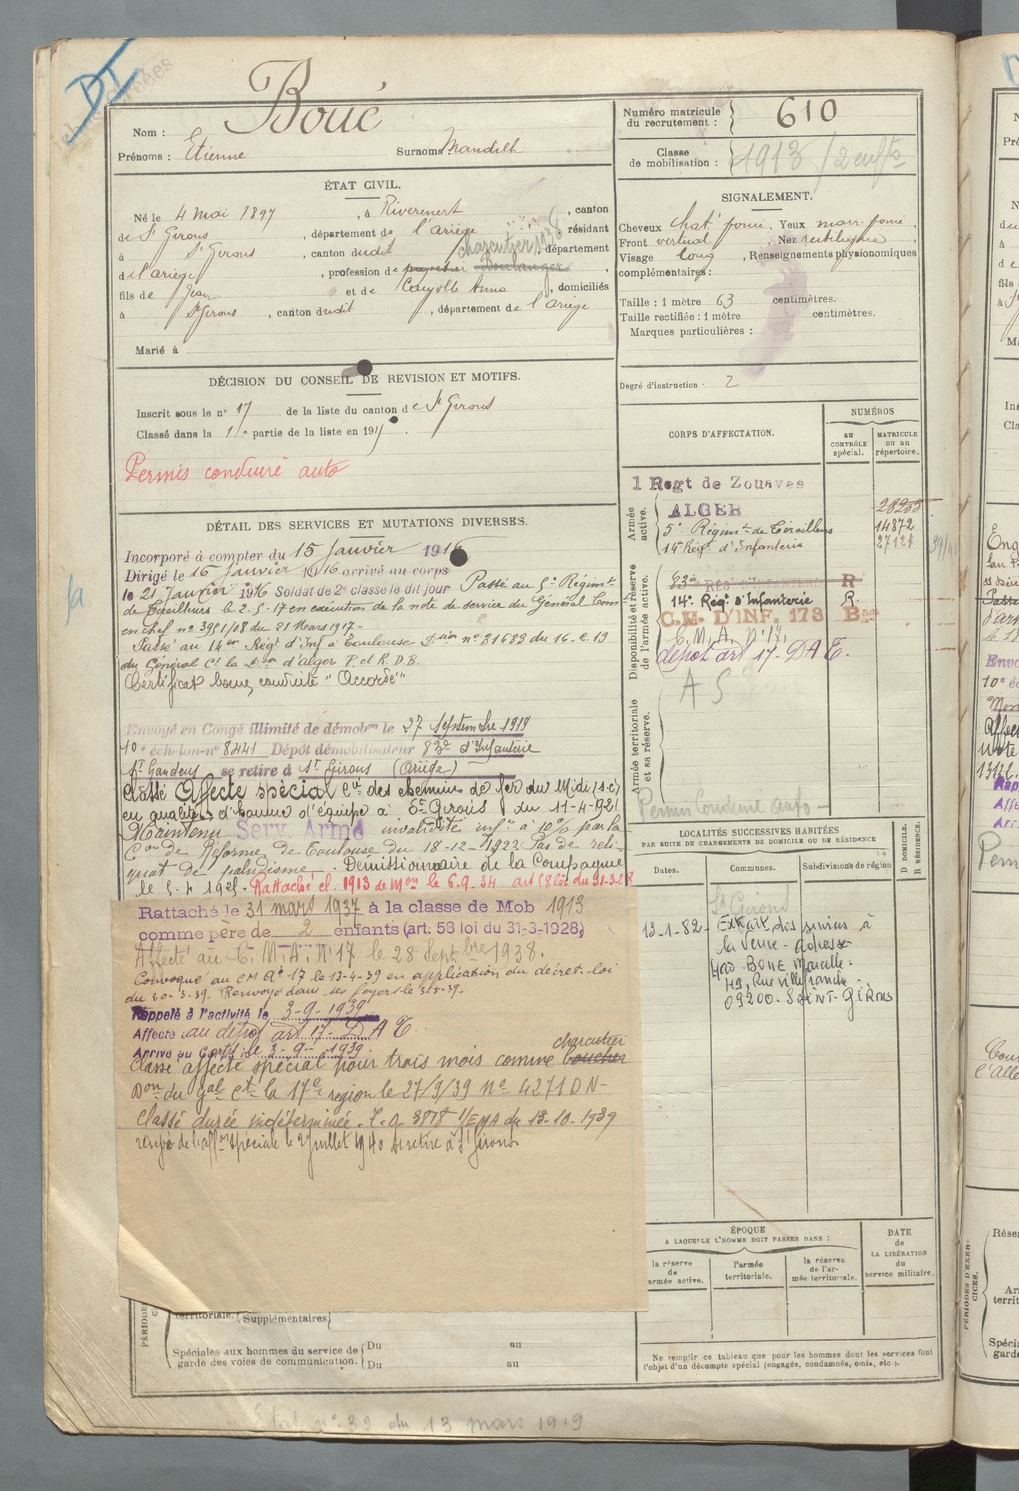 DI
Boué
Nom :
Prénoms : Etienne Surnoms : Mandilh
Numéro matricule du recrutement : 610
Classe de mobilisation : 1913 / 2 enfts
ÉTAT CIVIL.
Né le 4 Mai 1897, à Riverenert, canton
de St Girons, département de l'ariège, résidant
à St Girons, canton dudit, département
charcutier 1936
de l'ariège, profession de Boulanger,
fils de Jean et de Cayolle Anna, domiciliés
à St Girons, canton dudit, département de l'ariège
Marié à
SIGNALEMENT.
Cheveux chat. foncé, Yeux marr. foncé
Front vertical, Nez rectiligne
Visage long, Renseignements physionomiques
complémentaires :
Taille : 1 mètre 63 centimètres.
Taille rectifiée : 1 mètre centimètres.
Marques particulières :
Degré d'instruction : 2
DÉCISION DU CONSEIL DE REVISION ET MOTIFS.
Inscrit sous le n° 17 de la liste du canton de St Girons
Classé dans la 1re partie de la liste en 191
Permis conduire auto
CORPS D'AFFECTATION.
NUMÉROS
AU CONTRÔLE spécial.
MATRICULE OU AU répertoire.
Armée active.
1 Regt de Zouaves
ALGER 28255
5e Régimt de Tirailleurs 14872
14e Régt d'Infanterie 27121
Disponibilité et réserve de l'armée active.
83e REGT D'INFANTERIE R
14e Régt d'Infanterie R.
C.M. D'INF. 173 Bis
C.M.A. N°17,
dépot art 17 - DAT.
AS
Armée territoriale et sa réserve.
Permis Conduire Auto -
DÉTAIL DES SERVICES ET MUTATIONS DIVERSES.
Incorporé à compter du 15 Janvier 1916
Dirigé le 15 Janvier 1916 arrivé au corps
le 21 Janvier 1916 Soldat de 2e classe le dit jour Passé au 5e Régimt
de Tirailleurs le 2-5-17 en exécution de la note de service du Général Comt
en chef n° 3951/08 du 21 Mars 1917 -
Passé au 14me Régt d'Inf à Toulouse Don n° 31623 du 16-2-19
du Général Ct la Don d'alger P. et R. D.B.
Certificat bonne conduite "Accordé"
Envoyé en Congé illimité de démobon le 27 Septembre 1919
10e échelon - n° 8441 Dépôt démobilisateur 83e d'Infanterie
St Gaudens se retire à St Girons (Ariège)
Classé Affecté spécial Cie des chemins de fer du Midi (s.c)
en qualité d'homme d'équipe à St Girons du 11-4-921
Maintenu Serv. Armé invalidité infre à 10% par la
Con de Réforme de Toulouse du 18-12-1923 Pas de reli-
quat de paludisme. Demissionnaire de la Compagnie
le 5-4 1925. Rattaché cl. 1913 de Mon le 6.9.34 art 58 loi du 31-3-28
Rattaché le 31 mars 1937 à la classe de Mob 1913
comme père de 2 enfants (art: 58 loi du 31-3-1928)
Affecté au C.M.A. N°17 le 28 Septbre 1938.
Convoqué au CM Ai 17 le 13-4-39 en application du décret-loi
du 20-3-39. Renvoyé dans ses foyers le
Rappelé à l'activité le 3-9-1939
Affecté au dépot art 17 - DAT.
Arrivé au Corps le 3-9-1939
charcutier
Classé affecté spécial pour trois mois comme boucher
Don du gal Ct la 17e région le 27/9/39 n° 4271 DN -
Classé durée indéterminée. 3878 1/EMA du 13-10-1939
rayé de l'affon spéciale le 2 juillet 1940 se retire à St Girons
LOCALITÉS SUCCESSIVES HABITÉES
PAR SUITE DE CHANGEMENTS DE DOMICILE OU DE RÉSIDENCE
Dates.
Communes.
Subdivisions de région
D DOMICILE. R RÉSIDENCE.
St Girons
13-1-82 - Extrait des services à
la Veuve - adresse
Mad. BOUE Marcelle -
Rue Villefranche -
09200 - SAINT-GIRONS
ÉPOQUE
A LAQUELLE L'HOMME DOIT PASSER DANS :
la réserve de armée active.
l'armée territoriale.
la réserve de l'armée territoriale.
DATE de LA LIBÉRATION du service militaire.
territoriale. Supplémentaires
Spéciales aux hommes du service de garde des voies de communication.
Du au
Du au
Ne remplir ce tableau que pour les hommes dont les services font
l'objet d'un décompte spécial (engagés, condamnés, omis, etc.).
Etat n° 39 du 13 mars 1919